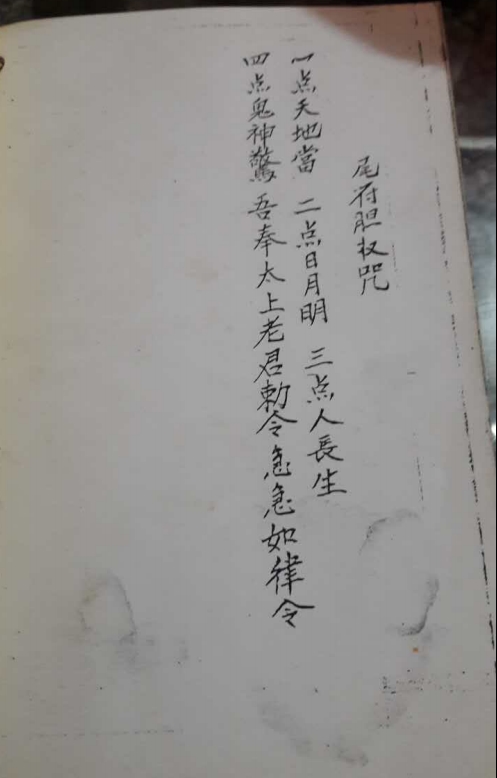 尾符胆杈咒
一点天地當 二点日月明 三点人長生
四点鬼神驚 吾奉太上老君勅令急急如律令